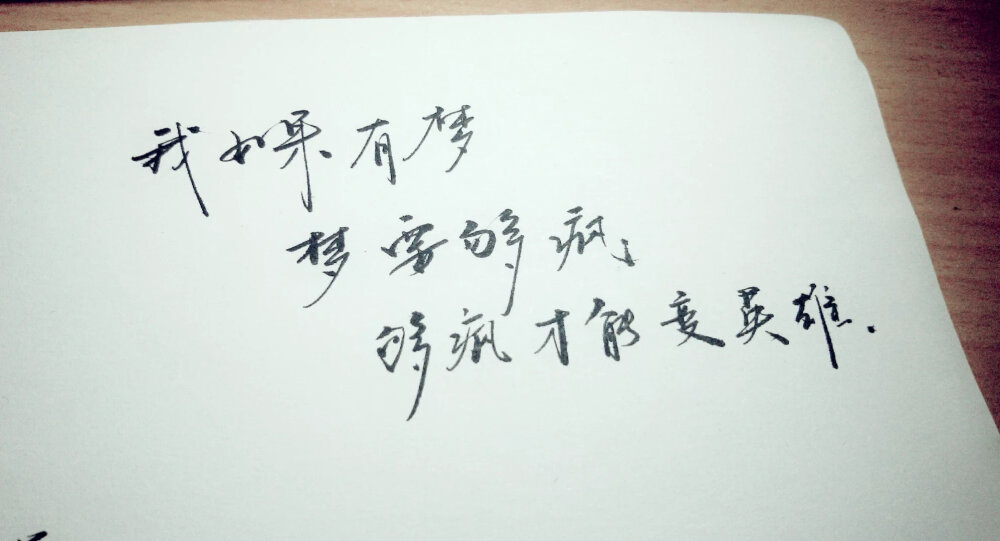 我如果有梦
梦要够疯
够疯才能变英雄.